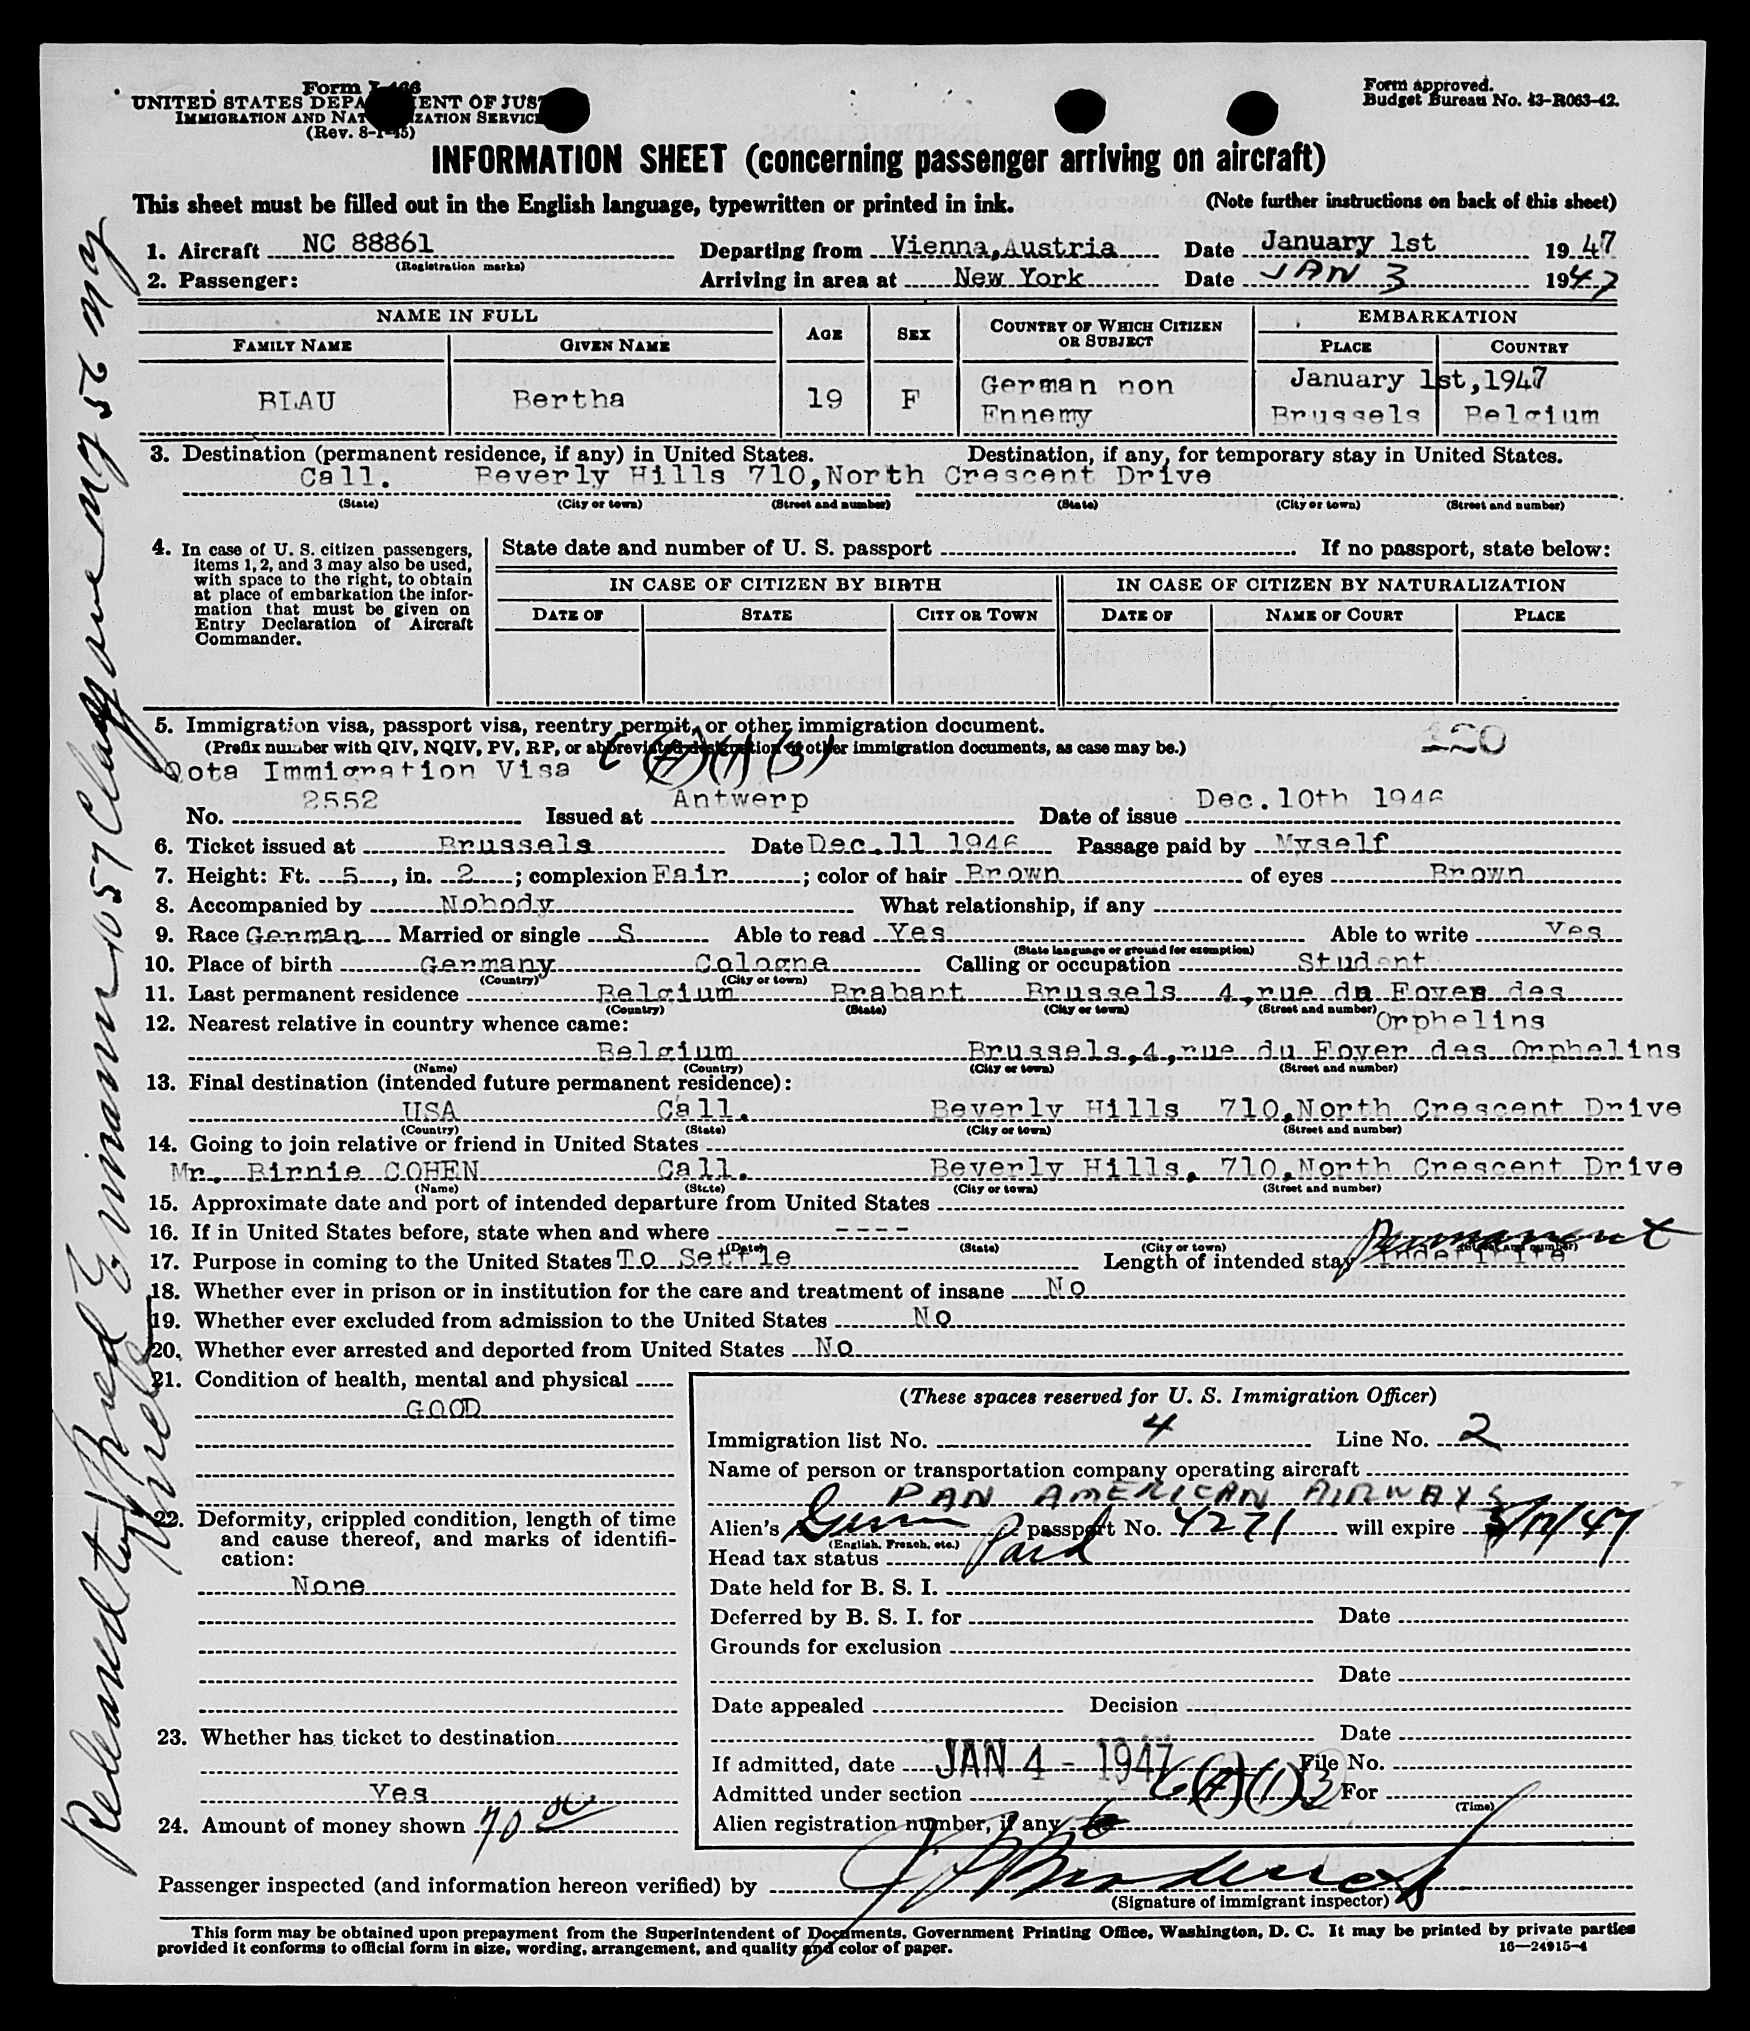 Form I-466
UNITED STATES DEPARTMENT OF JUSTICE
IMMIGRATION AND NATURALIZATION SERVICE
(Rev. 8-1-45)
Form approved.
Budget Bureau No. 43-R063-42.
INFORMATION SHEET (concerning passenger arriving on aircraft)
This sheet must be filled out in the English language, typewritten or printed in ink. (Note further instructions on back of this sheet)
1. Aircraft NC 88861 Departing from Vienna,Austria Date January 1st 1947
(Registration marks)
2. Passenger: Arriving in area at New York Date JAN 3 1947
NAME IN FULL AGE SEX COUNTRY OF WHICH CITIZEN OR SUBJECT EMBARKATION
FAMILY NAME GIVEN NAME PLACE COUNTRY
BLAU Bertha 19 F German non Ennemy January 1st,1947 Brussels Belgium
3. Destination (permanent residence, if any) in United States. Destination, if any, for temporary stay in United States.
Call. Beverly Hills 710,North Crescent Drive
(State) (City or town) (Street and number) (State) (City or town) (Street and number)
4. In case of U. S. citizen passengers, items 1, 2, and 3 may also be used, with space to the right, to obtain at place of embarkation the information that must be given on Entry Declaration of Aircraft Commander.
State date and number of U. S. passport If no passport, state below:
IN CASE OF CITIZEN BY BIRTH IN CASE OF CITIZEN BY NATURALIZATION
DATE OF STATE CITY OR TOWN DATE OF NAME OF COURT PLACE
5. Immigration visa, passport visa, reentry permit, or other immigration document.
(Prefix number with QIV, NQIV, PV, RP, or abbreviated designation of other immigration documents, as case may be.)
120
Qota Immigration Visa 6 (A) (1) (3)
No. 2552 Issued at Antwerp Date of issue Dec.10th 1946
6. Ticket issued at Brussels Date Dec.11 1946 Passage paid by Myself
7. Height: Ft. 5, in. 2; complexion Fair; color of hair Brown of eyes Brown
8. Accompanied by Nobody What relationship, if any
9. Race German Married or single S Able to read Yes Able to write Yes
(State language or ground for exemption)
10. Place of birth Germany Cologne Calling or occupation Student
(Country) (City or town)
11. Last permanent residence Belgium Brabant Brussels 4,rue du Foyer des
(Country) (State) (City or town) (Street and number)
Orphelins
12. Nearest relative in country whence came:
Belgium Brussels,4,rue du Foyer des Orphelins
(Name) (Country) (City or town) (Street and number)
13. Final destination (intended future permanent residence):
USA Call. Beverly Hills 710,North Crescent Drive
(Country) (State) (City or town) (Street and number)
14. Going to join relative or friend in United States
Mr. Birnie COHEN Call. Beverly Hills, 710,North Crescent Drive
(Name) (State) (City or town) (Street and number)
15. Approximate date and port of intended departure from United States
16. If in United States before, state when and where ----
(Date) (State) (City or town) (Street and number)
17. Purpose in coming to the United States To Settle Length of intended stay Indefinite Permanent
18. Whether ever in prison or in institution for the care and treatment of insane No
19. Whether ever excluded from admission to the United States No
20. Whether ever arrested and deported from United States No
21. Condition of health, mental and physical
GOOD
22. Deformity, crippled condition, length of time and cause thereof, and marks of identification:
None
23. Whether has ticket to destination
Yes
24. Amount of money shown 70 00
(These spaces reserved for U. S. Immigration Officer)
Immigration list No. 4 Line No. 2
Name of person or transportation company operating aircraft
PAN AMERICAN AIRWAYS
Alien's passport No. 4271 will expire
(English, French, etc.)
Head tax status Paid
Date held for B. S. I.
Deferred by B. S. I. for Date
Grounds for exclusion
Date
Date appealed Decision
Date
If admitted, date JAN 4 - 1947 File No.
Admitted under section 6(A)(1)(3) For
(Time)
Alien registration number, if any
Passenger inspected (and information hereon verified) by
(Signature of immigrant inspector)
This form may be obtained upon prepayment from the Superintendent of Documents, Government Printing Office, Washington, D. C. It may be printed by private parties
provided it conforms to official form in size, wording, arrangement, and quality and color of paper. 16—24915-4
Released to